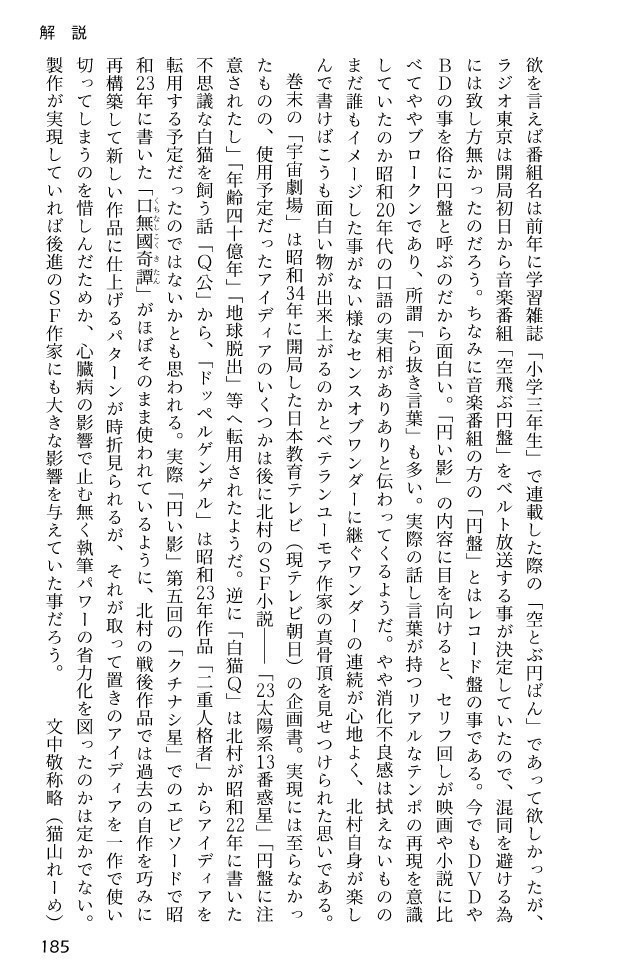 解説
欲を言えば番組名は前年に学習雑誌「小学三年生」で連載した際の「空とぶ円ばん」であって欲しかったが、
ラジオ東京は開局初日から音楽番組「空飛ぶ円盤」をベルト放送する事が決定していたので、混同を避ける為
には致し方無かったのだろう。ちなみに音楽番組の方の「円盤」とはレコード盤の事である。今でもＤＶＤや
ＢＤの事を俗に円盤と呼ぶのだから面白い。「円い影」の内容に目を向けると、セリフ回しが映画や小説に比
べてややブロークンであり、所謂「ら抜き言葉」も多い。実際の話し言葉が持つリアルなテンポの再現を意識
していたのか昭和20年代の口語の実相がありありと伝わってくるようだ。やや消化不良感は拭えないものの
まだ誰もイメージした事がない様なセンスオブワンダーに継ぐワンダーの連続が心地よく、北村自身が楽し
んで書けばこうも面白い物が出来上がるのかとベテランユーモア作家の真骨頂を見せつけられた思いである。
巻末の「宇宙劇場」は昭和34年に開局した日本教育テレビ（現テレビ朝日）の企画書。実現には至らなかっ
たものの、使用予定だったアイディアのいくつかは後に北村のＳＦ小説――「23太陽系13番惑星」「円盤に注
意されたし」「年齢四十億年」「地球脱出」等へ転用されたようだ。逆に「白猫Ｑ」は北村が昭和22年に書いた
不思議な白猫を飼う話「Ｑ公」から、「ドッペルゲンゲル」は昭和23年作品「二重人格者」からアイディアを
転用する予定だったのではないかとも思われる。実際「円い影」第五回の「クチナシ星」でのエピソードで昭
和23年に書いた「口無國奇譚」がほぼそのまま使われているように、北村の戦後作品では過去の自作を巧みに
くちなしこくきたん
再構築して新しい作品に仕上げるパターンが時折見られるが、それが取って置きのアイディアを一作で使い
切ってしまうのを惜しんだためか、心臓病の影響で止む無く執筆パワーの省力化を図ったのかは定かでない。
製作が実現していれば後進のＳＦ作家にも大きな影響を与えていた事だろう。　文中敬称略（猫山れーめ）
185